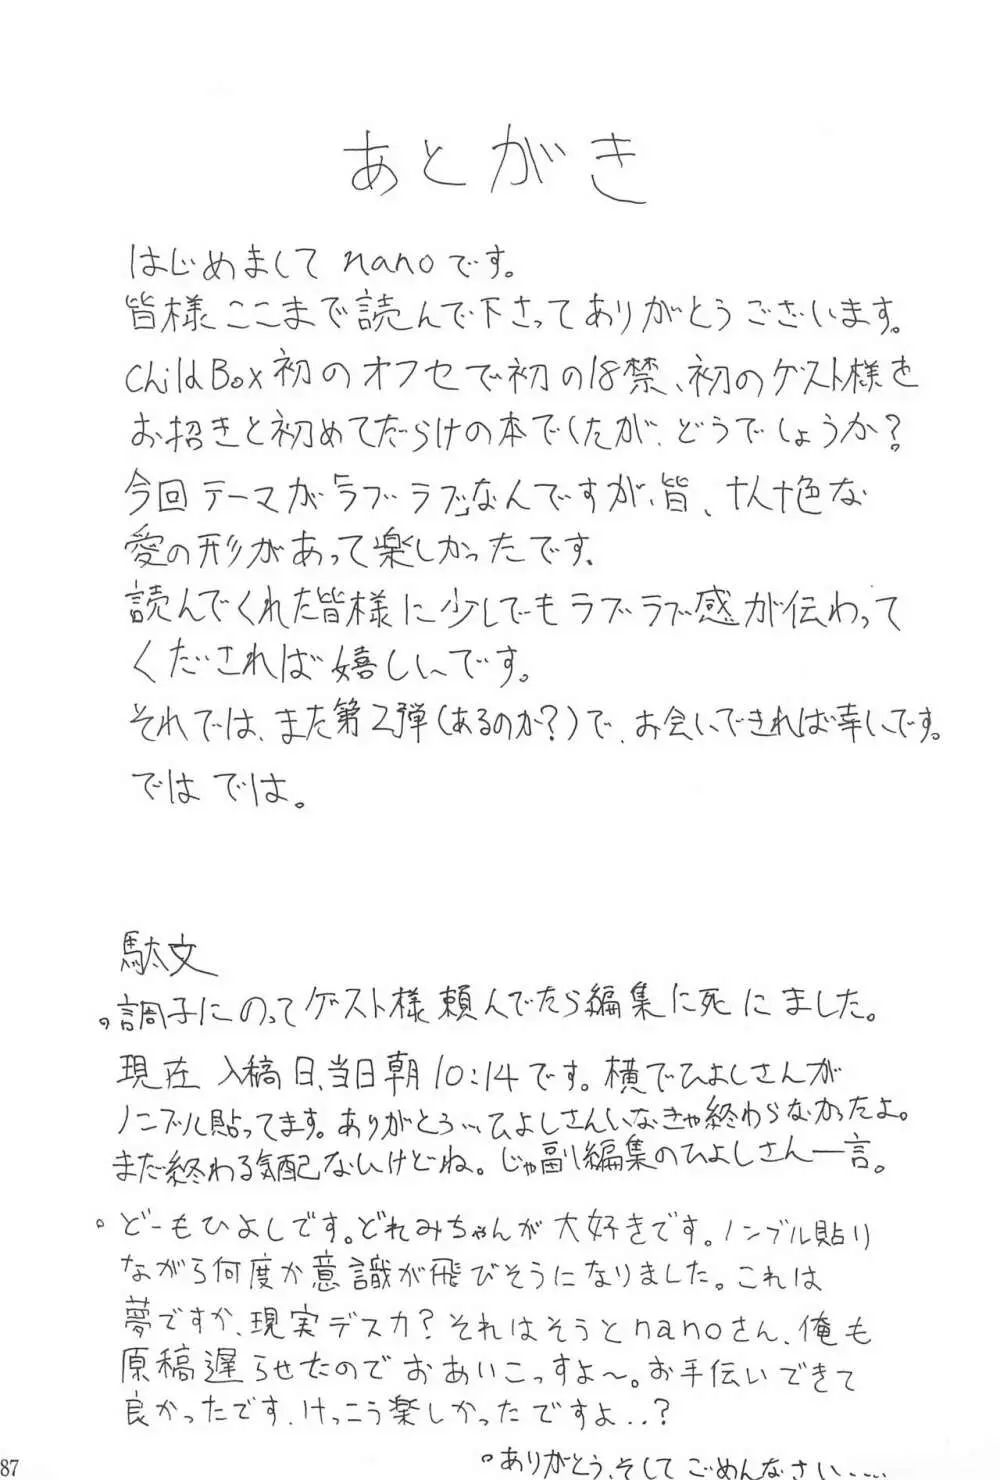 あとがき
はじめまして nanoです。
皆様ここまで読んで下さってありがとうございます。
ChildBox初のオフセで初の18禁、初のゲスト様を
お招きと初めてだらけの本でしたが、どうでしょうか？
今回テーマが「ラブラブ」なんですが、皆、十人十色な
愛の形があって楽しかったです。
読んでくれた皆様に少しでもラブラブ感が伝わって
くだされば嬉しいです。
それでは、また第2弾(あるのか？)で、お会いできれば幸いです。
ではでは。
駄文
。調子にのってゲスト様頼んでたら編集に死にました。
現在 入稿日、当日朝10:14です。横でひよしさんが
ノンブル貼ってます。ありがとう…ひよしさんいなきゃ終わらなかったよ。
まだ終わる気配ないけどね。じゃ副編集のひよしさん一言。
。どーもひよしです。どれみちゃんが大好きです。ノンブル貼り
ながら何度か意識が飛びそうになりました。これは
夢ですか、現実デスカ？それはそうとnanoさん、俺も
原稿遅らせたのでおあいこっすよ〜。お手伝いできて
良かったです、けっこう楽しかったですよ..？
。ありがとう、そしてごめんなさい.....
87